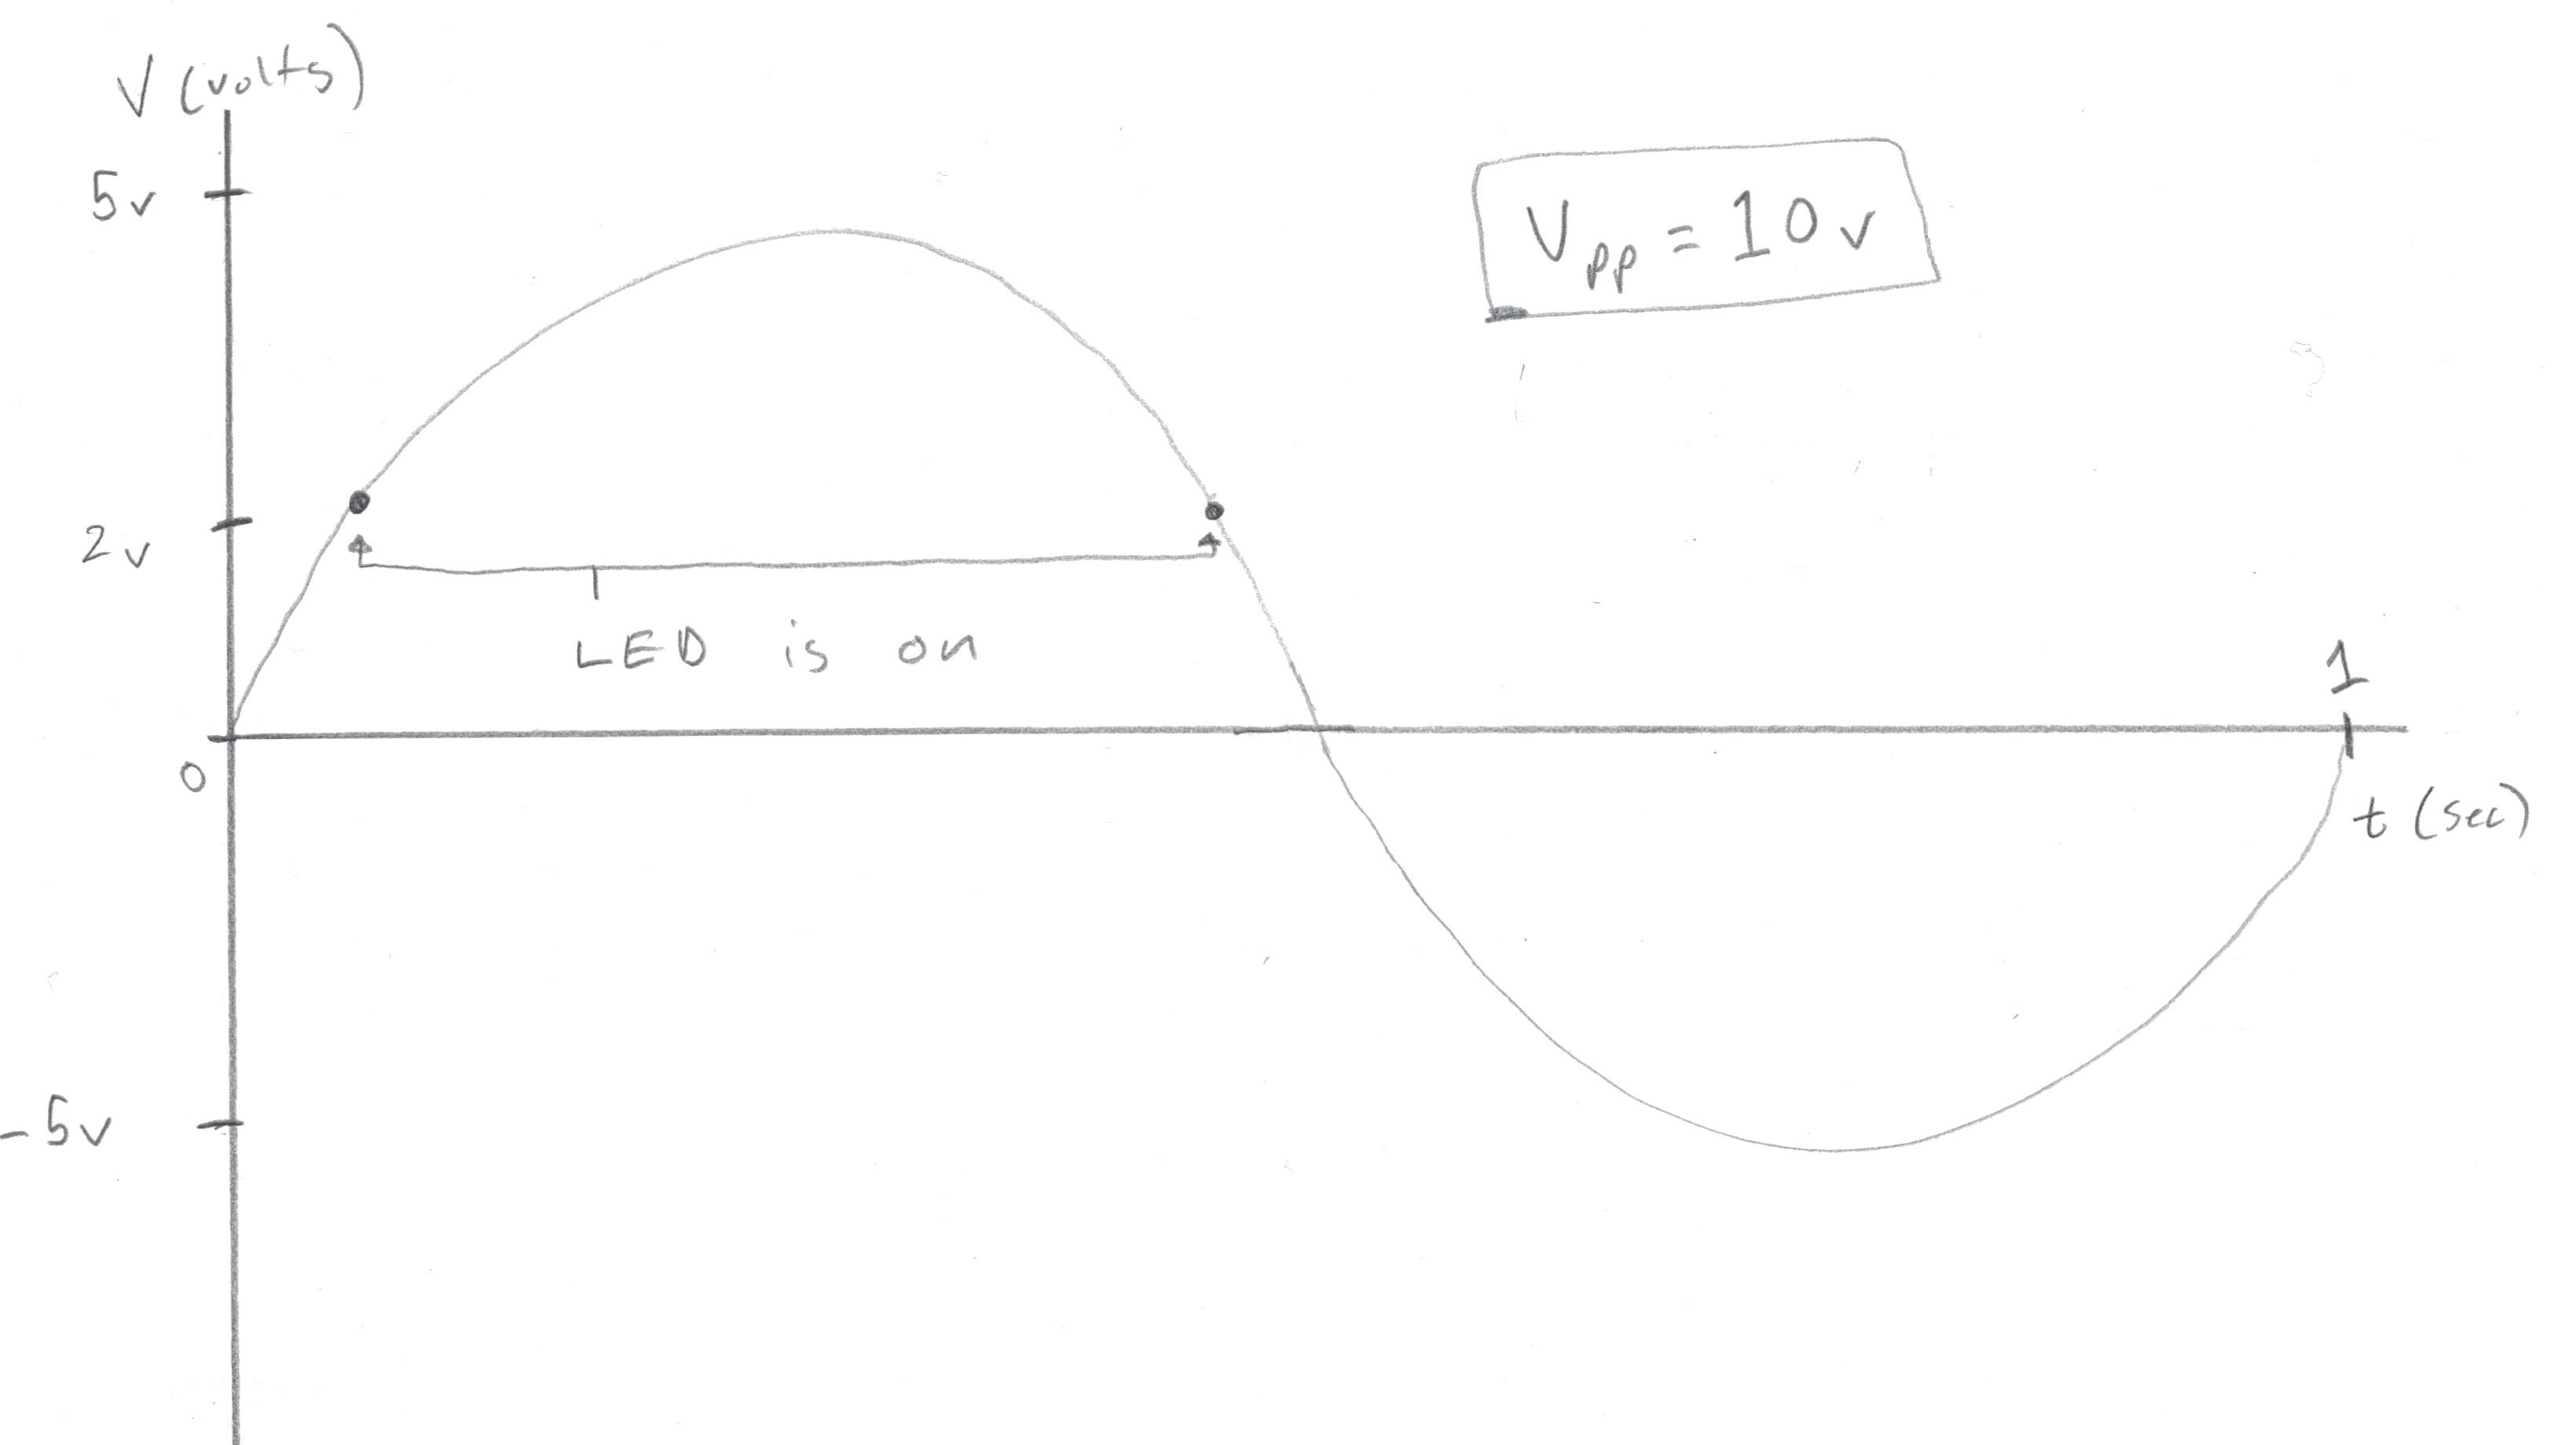 V (volts)
5v
Vpp = 10v
2v
LED is on
1
0
t (sec)
-5v